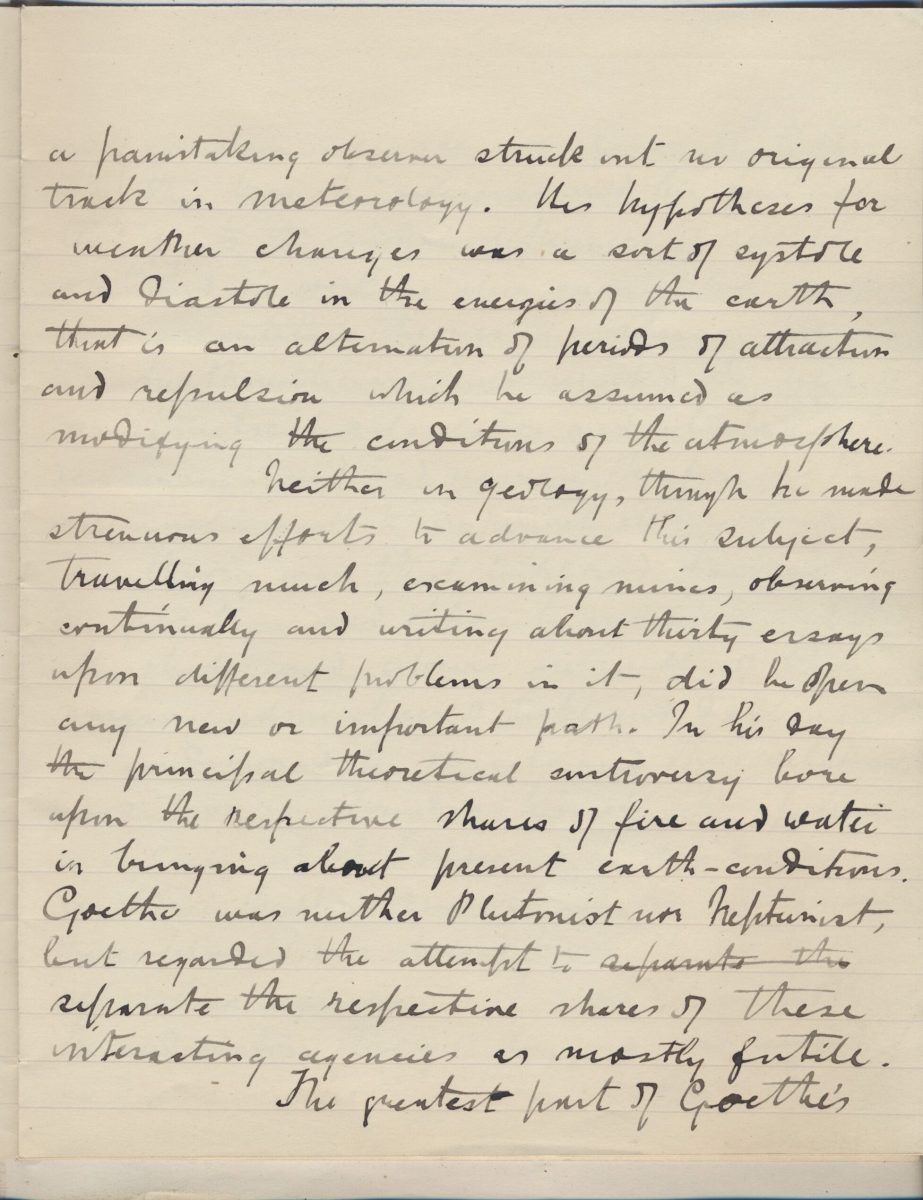 a painstaking observer struck out no original
track in meteorology. His hypotheses for
weather changes was a sort of systole
and diastole in the energies of the earth,
that is an alternation of periods of attraction
and repulsion which he assumed as
modifying the conditions of the atmosphere.
Neither in geology, though he made
strenuous efforts to advance this subject,
travelling much, examining mines, observing
continually and writing about thirty essays
upon different problems in it, did he open
any new or important path. In his day
the principal theoretical controversy bore
upon the respective shares of fire and water
in bringing about present earth-conditions.
Goethe was neither Plutonist nor Neptunist,
but regarded the attempt to separate the
separate the respective shares of these
interacting agencies as mostly futile.
The greatest part of Goethe's